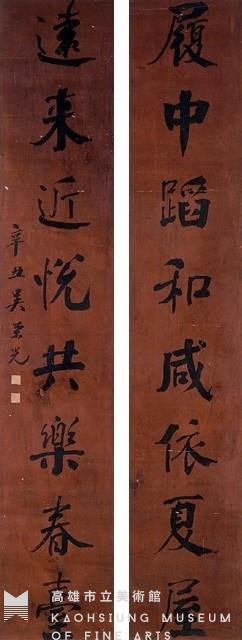 履中蹈和咸依夏屋
遠来近悅共樂春臺
辛丑吳榮光
高雄市立美術館
KAOHSIUNG MUSEUM
OF FINE ARTS